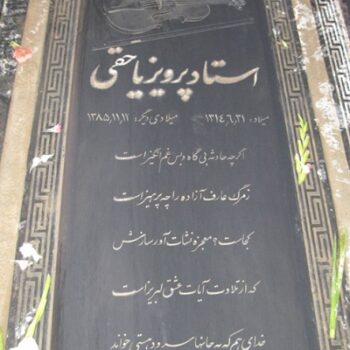 استاد پرویز یاحقی
میلاد: ۱۳۱۴,۶,۳۱ میلادی دیگر: ۱۳۸۵,۱۱,۱۱
اگرچه حادثه بی گاه و بس غم انگیز است
ز مرگ عارف آزاده را چه پرهیز است
کجاست؟ معجزه نشأت آور سازش
که از تلاوت آیات عشق لبریز است
خدای هم که به جانها سرود مستی خواند